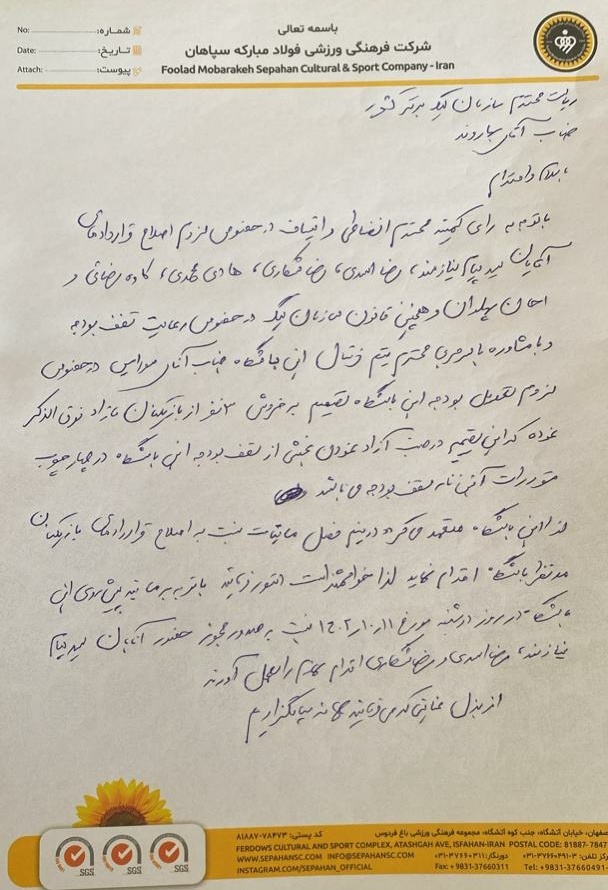 باسمه تعالی
شرکت فرهنگی ورزشی فولاد مبارکه سپاهان
Foolad Mobarakeh Sepahan Cultural & Sport Company - Iran
No: شماره:
Date: تاریخ:
Attach: پیوست:
ریاست محترم سازمان لیگ برتر کشور
جناب آقای بهاروند
با سلام و احترام
با توجه به رای کمیته محترم انضباطی و اتیاف در خصوص لزوم اصلاح قراردادهای
آقایان سید پیام نیازمند، رضا اسدی، رضا شکاری، هادی محمدی، کاوه رضائی و
احسان پهلوان و همچنین قانون سازمان لیگ در خصوص رعایت سقف بودجه
و با مشاوره با سرمربی محترم تیم فوتبال این باشگاه جناب آقای مورایس در خصوص
لزوم تعدیل بودجه این باشگاه تصمیم به فروش ۳ نفر از بازیکنان مازاد فوق الذکر
نموده که این تصمیم در جهت آزاد نمودن بخشی از سقف بودجه این باشگاه در چهارچوب
مقررات آئین نامه سقف بودجه می باشد
لذا این باشگاه متعهد می گردد در نیم فصل مابقات نسبت به اصلاح قراردادهای بازیکنان
مد نظر باشگاه اقدام نماید لذا خواهشمند است دستور فرمائید با توجه به برنامه پیش روی این
باشگاه در روز دوشنبه مورخ ۱۴۰۲/۱۰/۱۱ نسبت به صدور مجوز حضور آقایان سید پیام
نیازمند، رضا اسدی و رضا شکاری اقدام لازم را بعمل آورند
از بذل عنایتی که می فرمائید صمیمانه سپاسگزاریم
SGS SGS SGS
اصفهان، خیابان آتشگاه، جنب کوه آتشگاه، مجموعه فرهنگی ورزشی باغ فردوس کد پستی: ۷۸۴۷۳-۸۱۸۸۷
FERDOWS CULTURAL AND SPORT COMPLEX, ATASHGAH AVE, ISFAHAN-IRAN POSTAL CODE: 81887-7847
WWW.SEPAHANSC.COM INFO@SEPAHANSC.COM دورنگار: ۳۷۶۶۰۳۱۱-۰۳۱ مرکز تلفن: ۳-۳۷۶۶۰۴۹۱-۰۳۱
INSTAGRAM.COM/SEPAHAN_OFFICIAL Fax: +9831-37660311 Tel: +9831-37660491